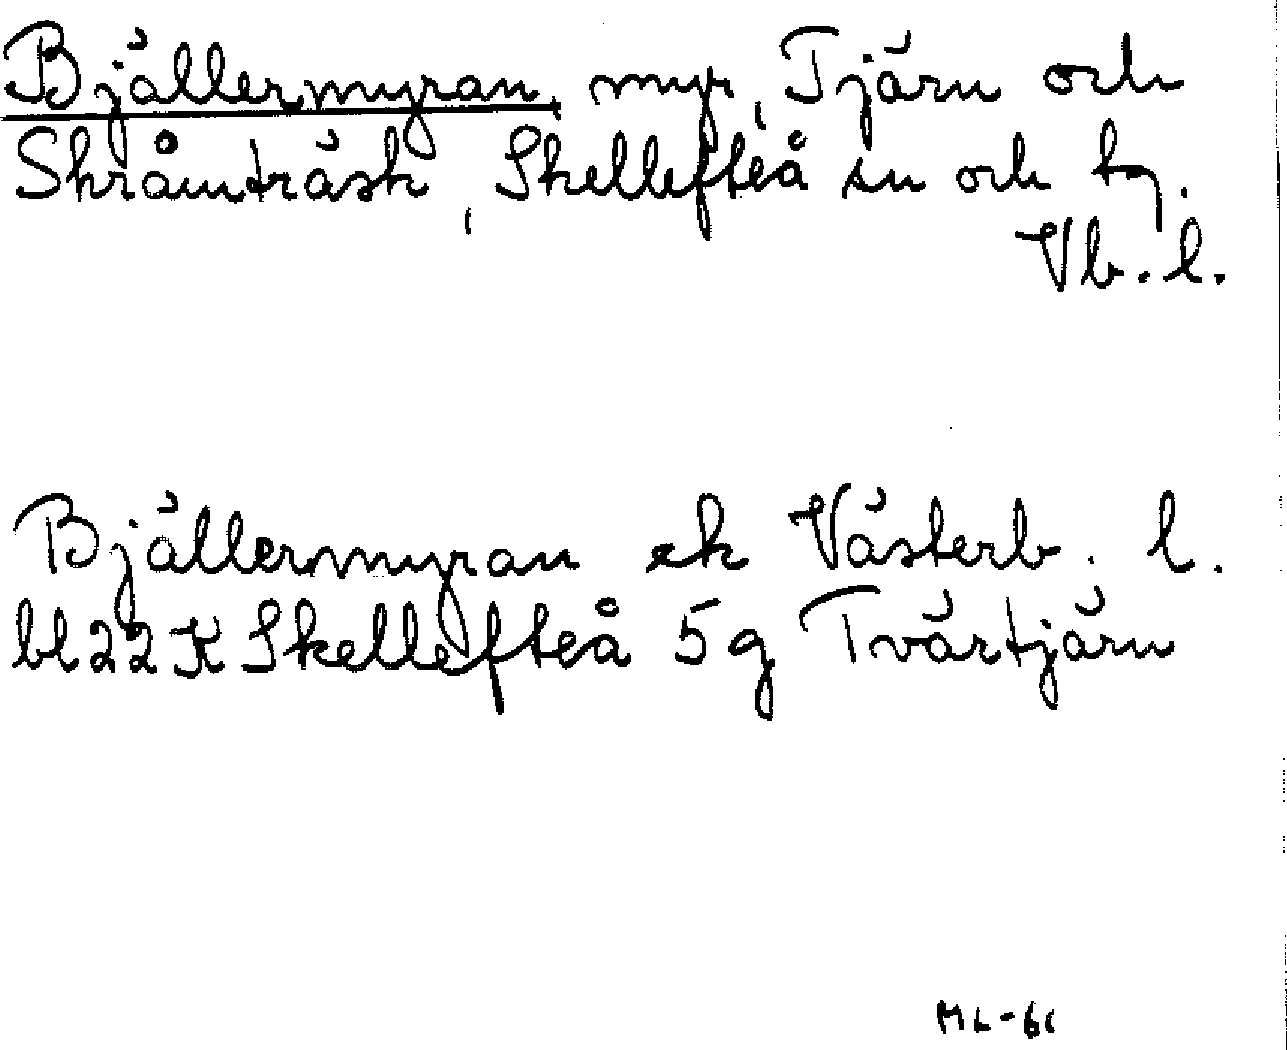 Bjällermyran, myr, Tjärn och
Skråmträsk, Skellefteå sn och tg.
Vb. l.
Bjällermyran ek Västerb. l.
bl 22 K Skellefteå 5g Tvärtjärn
ML-61